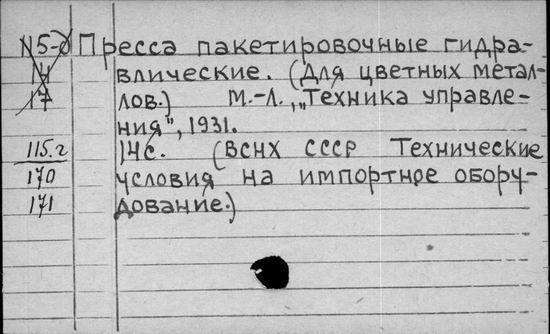 N5-д Пресса пакетировочные гидра-
14 влические. (Для цветных метал-
17 лов.) М.-Л., „Техника управле-
ния", 1931.
115.г 14с. (ВСНХ СССР Технические
170 условия на импортное обору-
171 дование.)